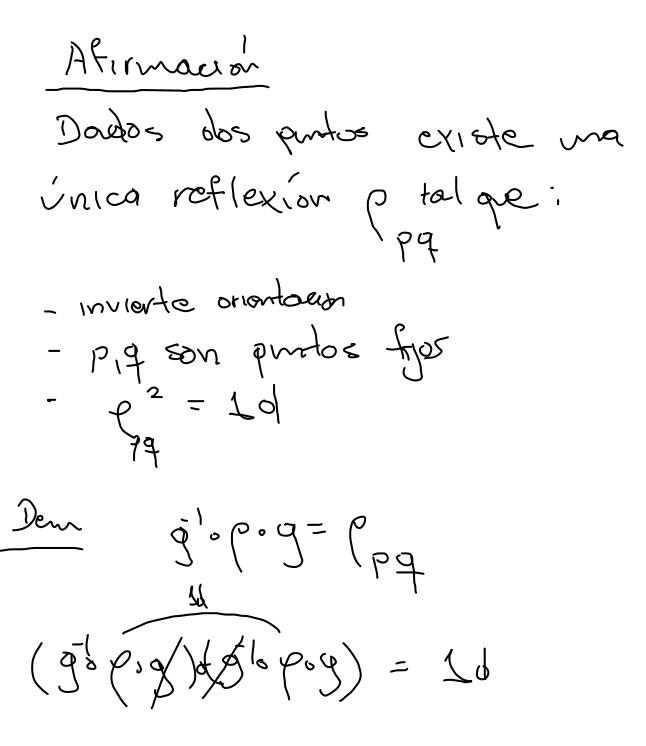 Afirmación
Dados dos puntos existe una
única reflexión ρ_pq tal que:
- invierte orientación
- p, q son puntos fijos
- ρ_pq² = Id
Dem g⁻¹∘ρ∘g = ρ_pq
Id
(g⁻¹∘ρ∘g)∘(g⁻¹∘ρ∘g) = Id